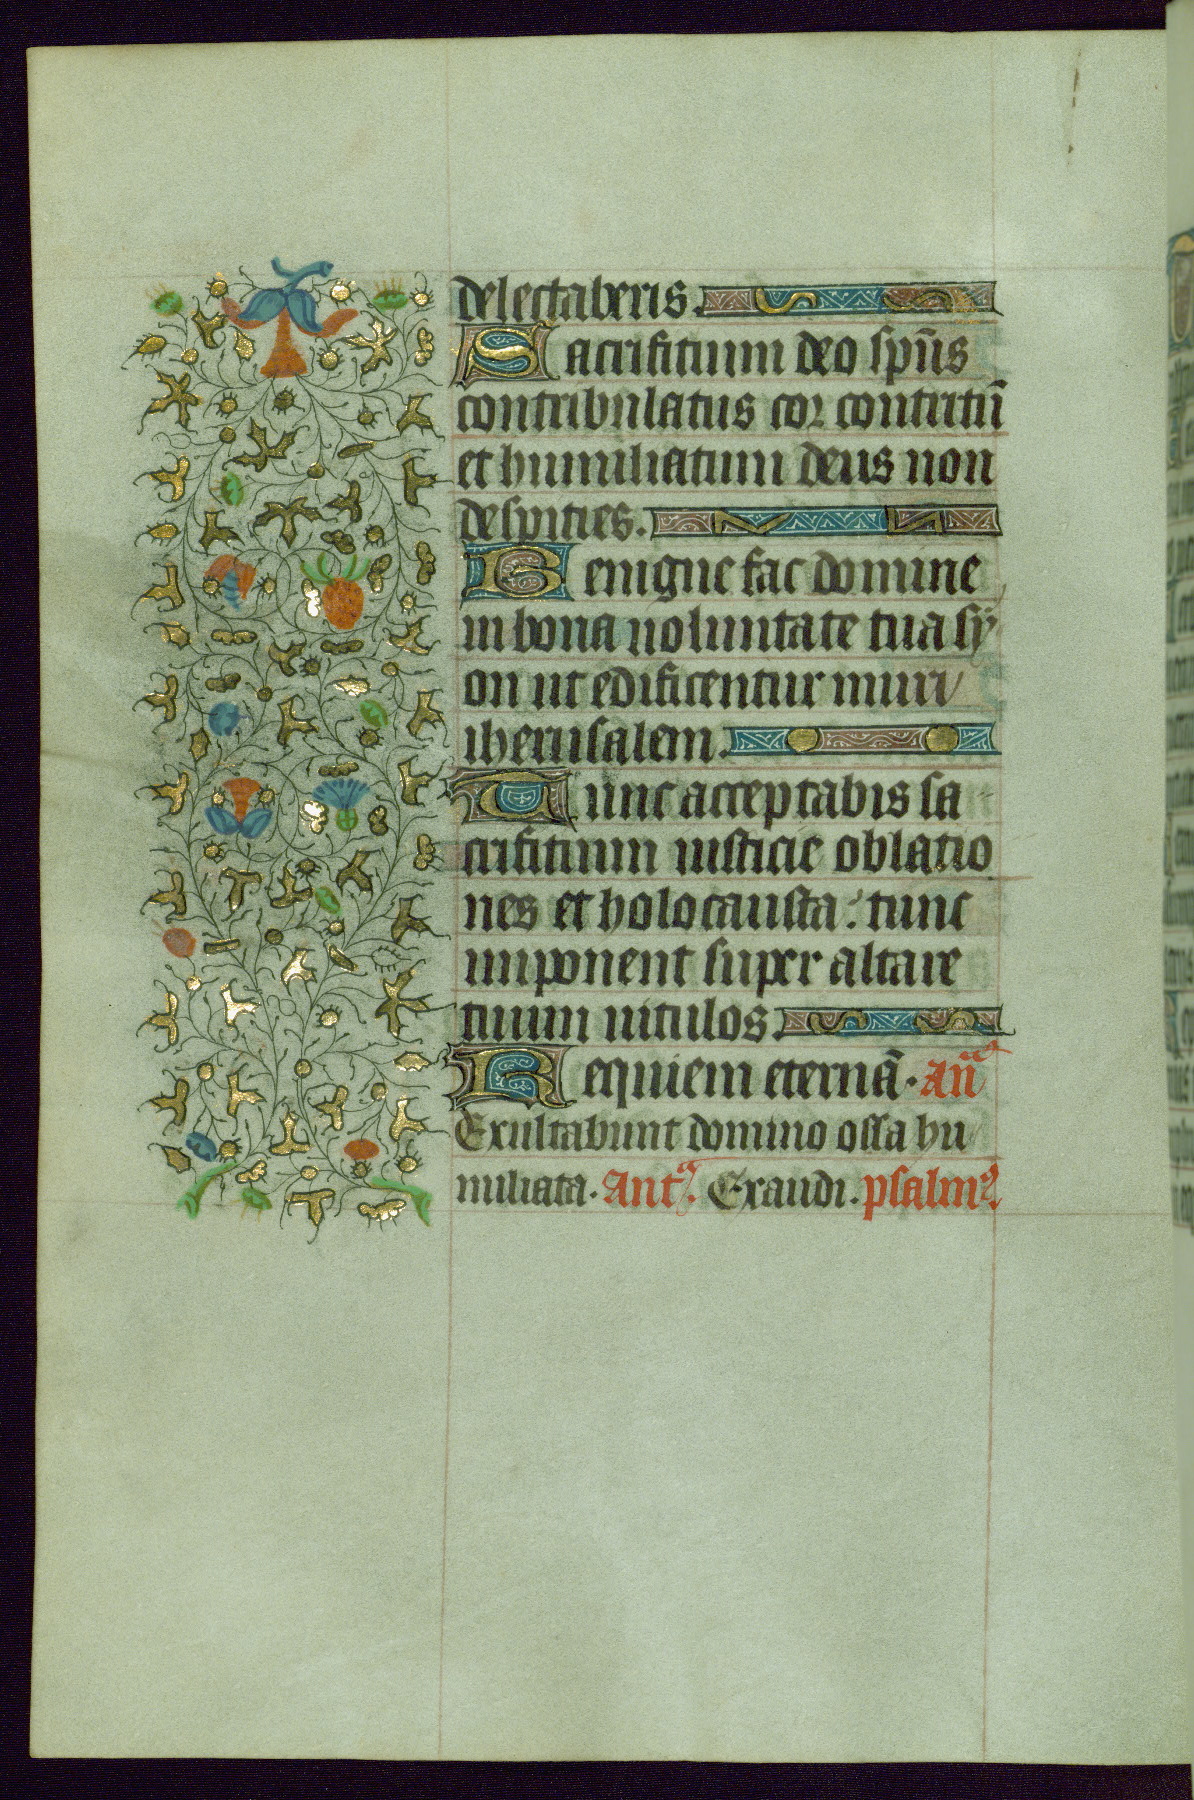 delectaberis.
Sacrificium deo spūs
contribulatus cor contritū
et humiliatum deus non
despicies.
Benigne fac domine
in bona uoluntate tua sy
on ut edificentur muri
iherusalem.
Tunc acceptabis sa
crificium iusticie oblatio
nes et holocausta: tunc
imponent super altare
tuum uitulos
Requiem eternā. Añ
Exultabunt domino ossa hu
miliata. Antᵃ. Exaudi. psalmꝰ.